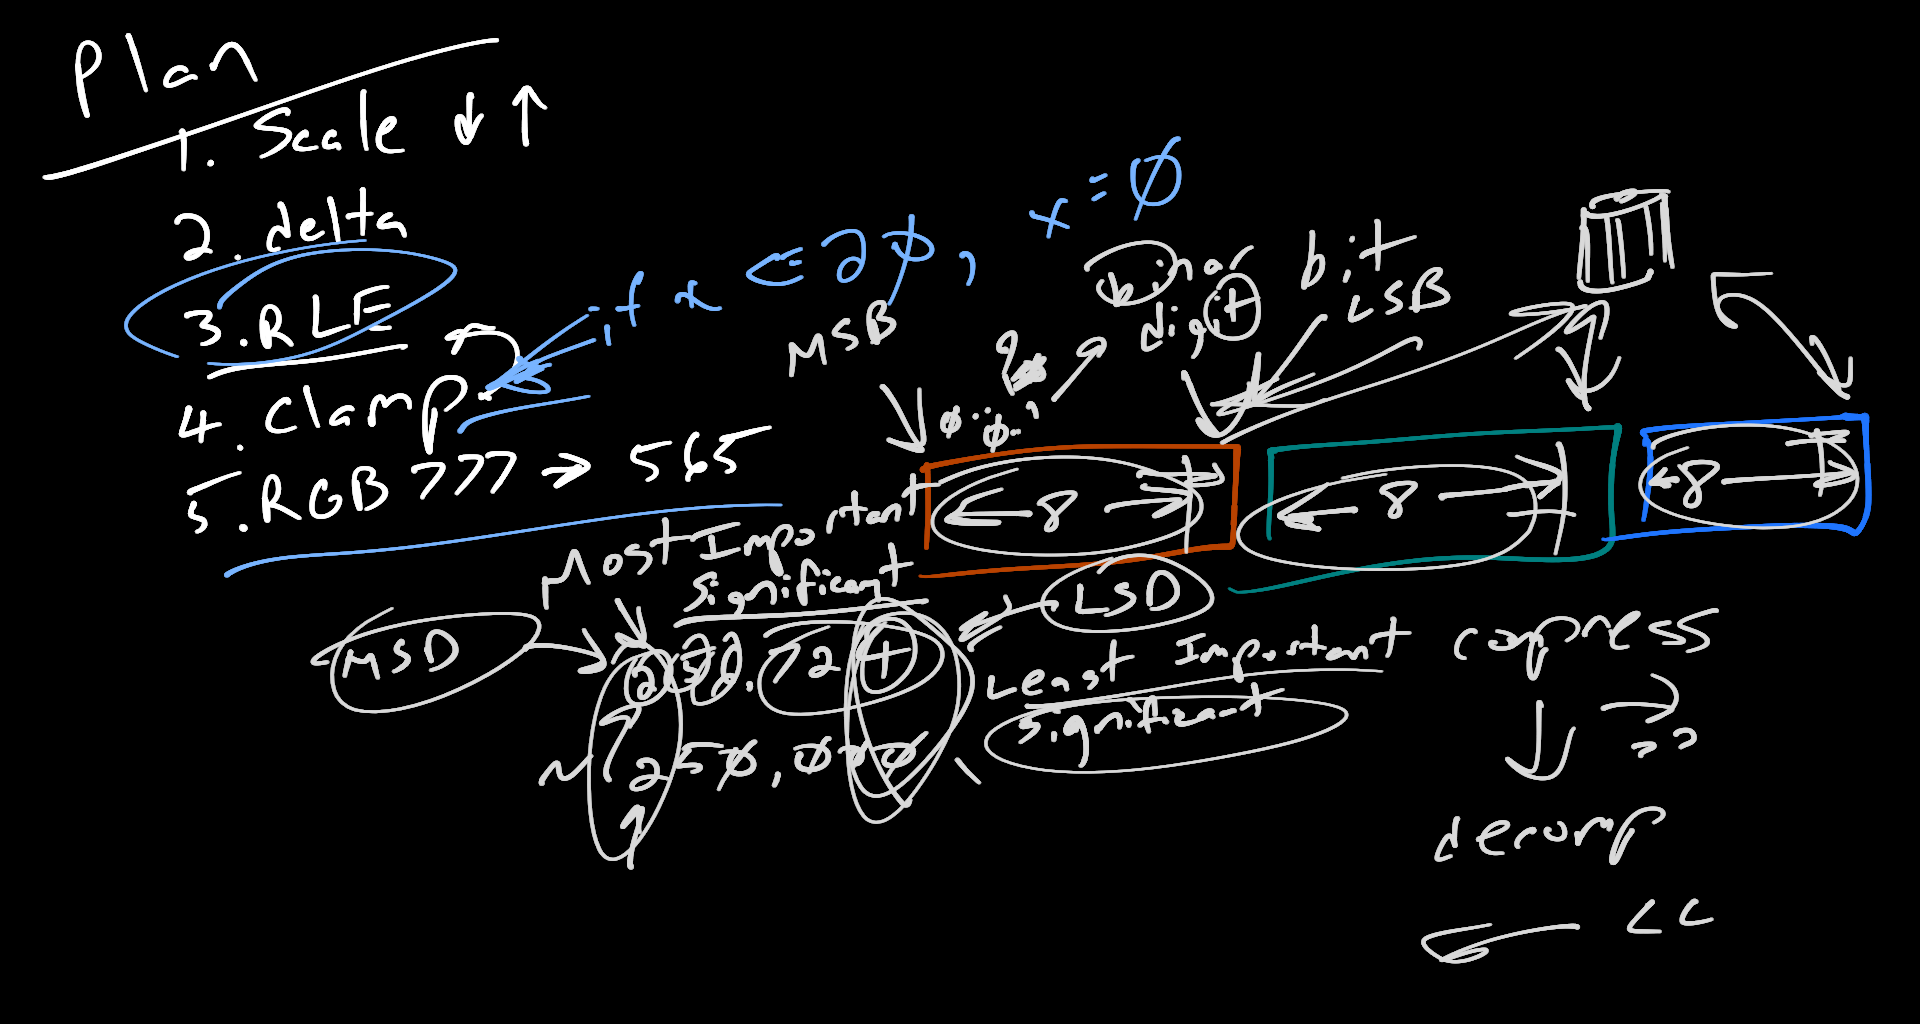 Plan
1. Scale ↓ ↑
2. delta
3. RLE
4. Clamp
5. RGB 777 → 565
if x <= 20, x = 0
binar
digit
bit
MSB
LSB
8
8
8
Most Important
significant
MSD
LSD
250,000
Least Important
significant
compress
>>
decomp
<<